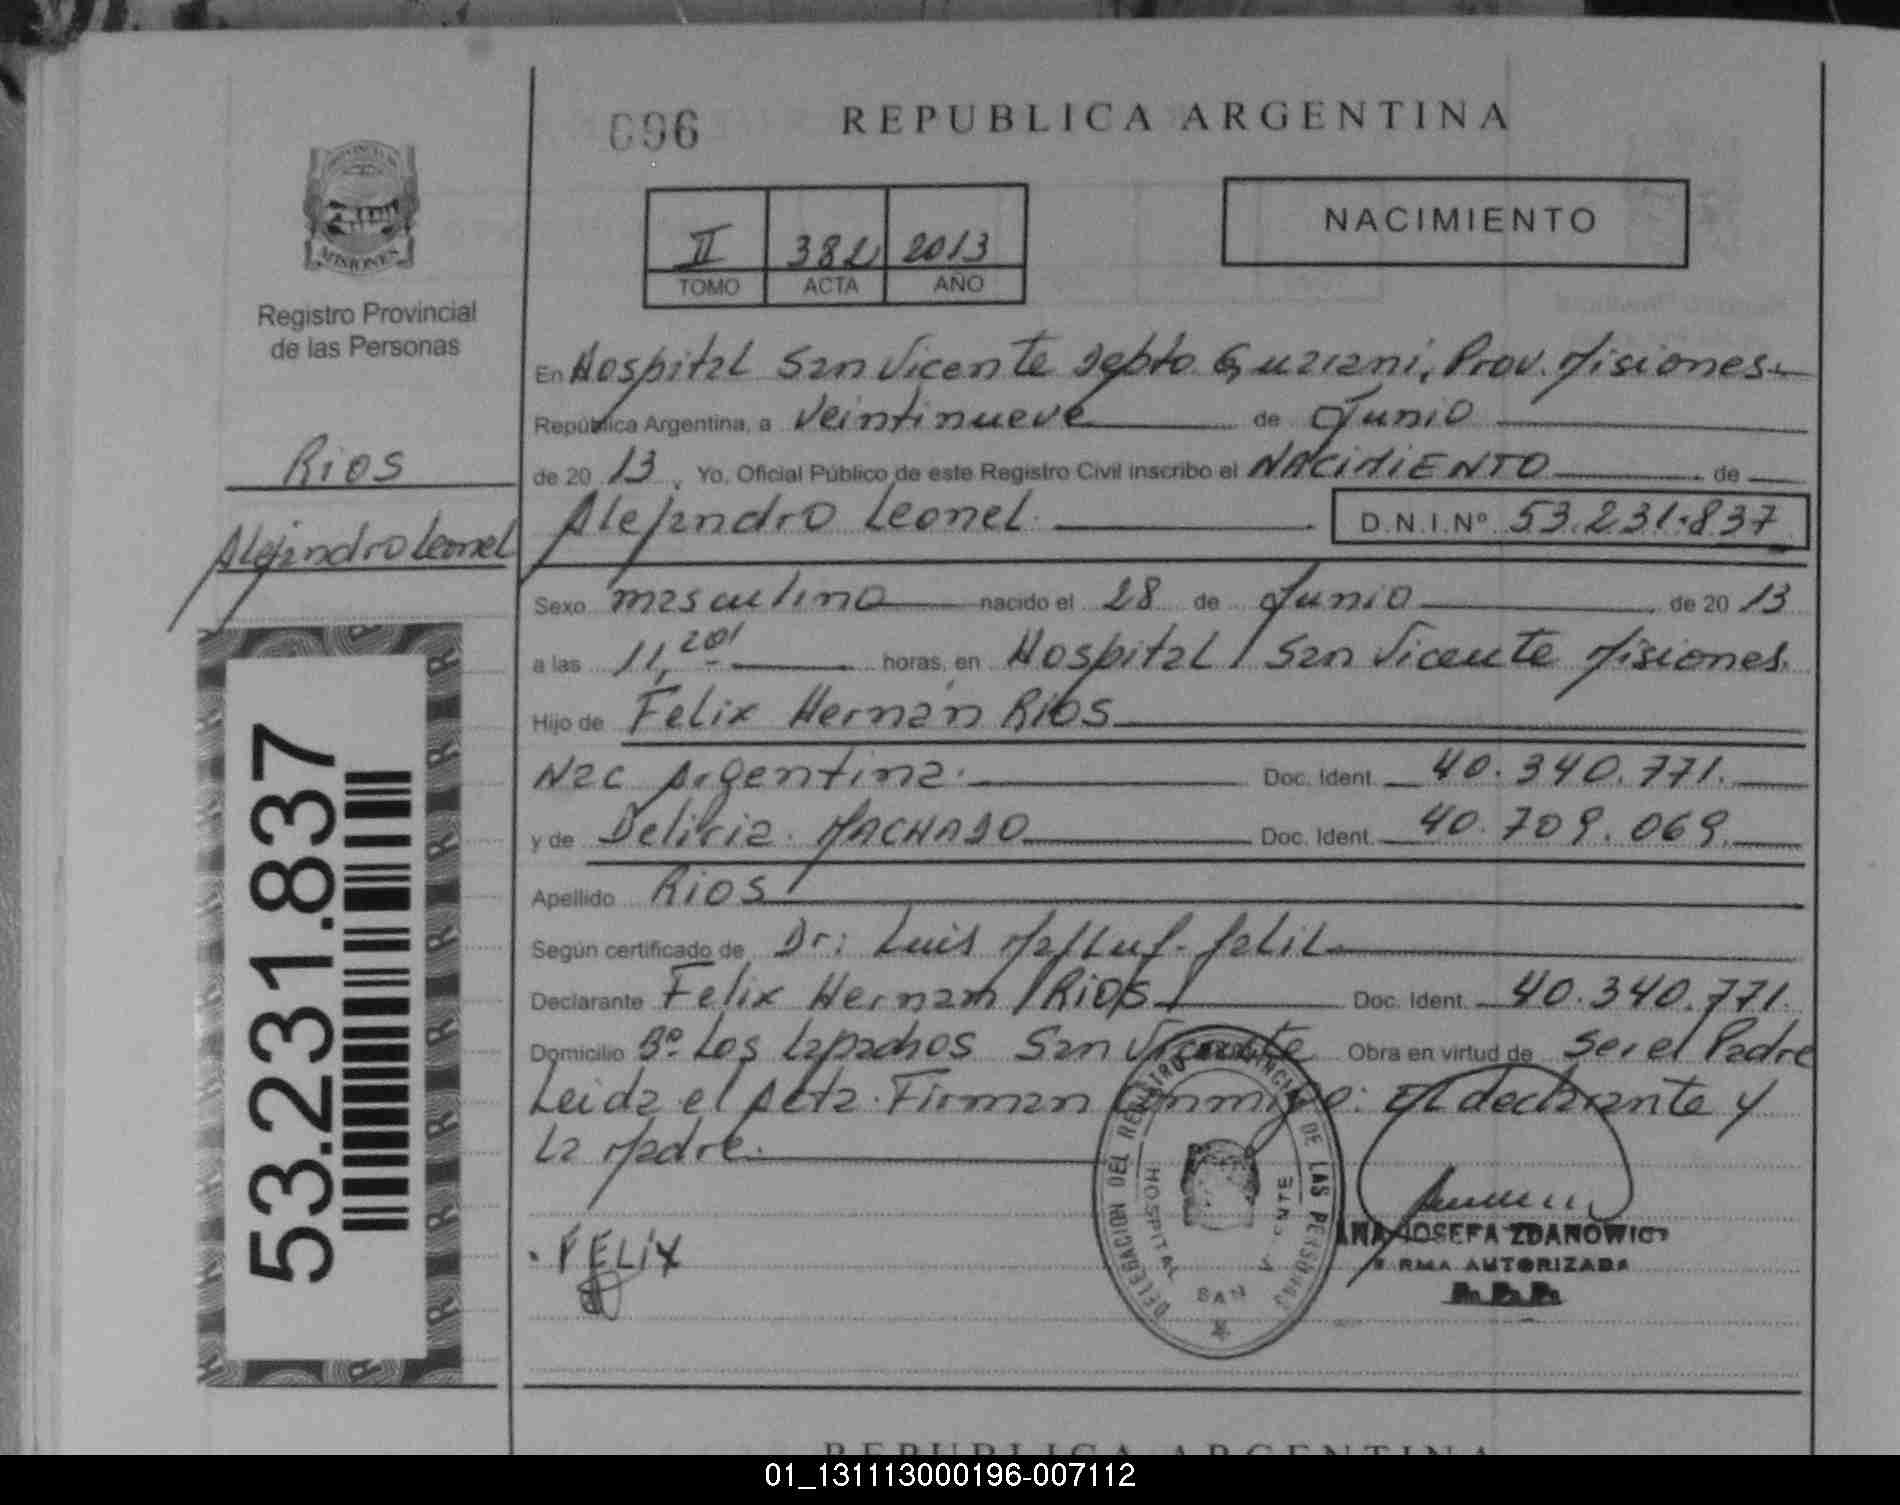 096
REPUBLICA ARGENTINA
PROVINCIA DE
MISIONES
Registro Provincial
de las Personas
II 382 2013
TOMO ACTA AÑO
NACIMIENTO
En Hospital San Vicente Depto Guarani, Prov. Misiones
República Argentina, a veintinueve de Junio
de 20 13, Yo, Oficial Público de este Registro Civil inscribo el NACIMIENTO de
Rios
Alejandro Leonel
Alejandro Leonel D.N.I.Nº 53.231.837
Sexo masculino nacido el 28 de Junio de 20 13
a las 11,20' horas, en Hospital San Vicente Misiones.
Hijo de Felix Hernan Rios
Nac Argentina. Doc. Ident. 40.340.771.
y de Deliria MACHADO Doc. Ident. 40.709.069.
Apellido Rios
Según certificado de Dr: Luis
Declarante Felix Hernam Rios Doc. Ident. 40.340.771.
Domicilio Bº. Los Lapachos San Vicente Obra en virtud de Ser el Padre
Leida el Acta. Firman Conmigo: El declarante y
La Madre.
53.231.837
FELIX
DELEGACION DEL REGISTRO PROVINCIAL DE LAS PERSONAS
HOSPITAL SAN VICENTE
ANA JOSEFA ZDANOWICZ
FIRMA AUTORIZADA
R. P. P.
REPUBLICA ARGENTINA
01_131113000196-007112